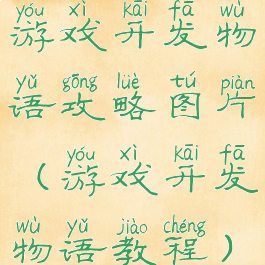 yóu xì kāi fā wù
游戏开发物
yǔ gōng lüè tú piàn
语攻略图片
yóu xì kāi fā
（游戏开发
wù yǔ jiào chéng
物语教程）